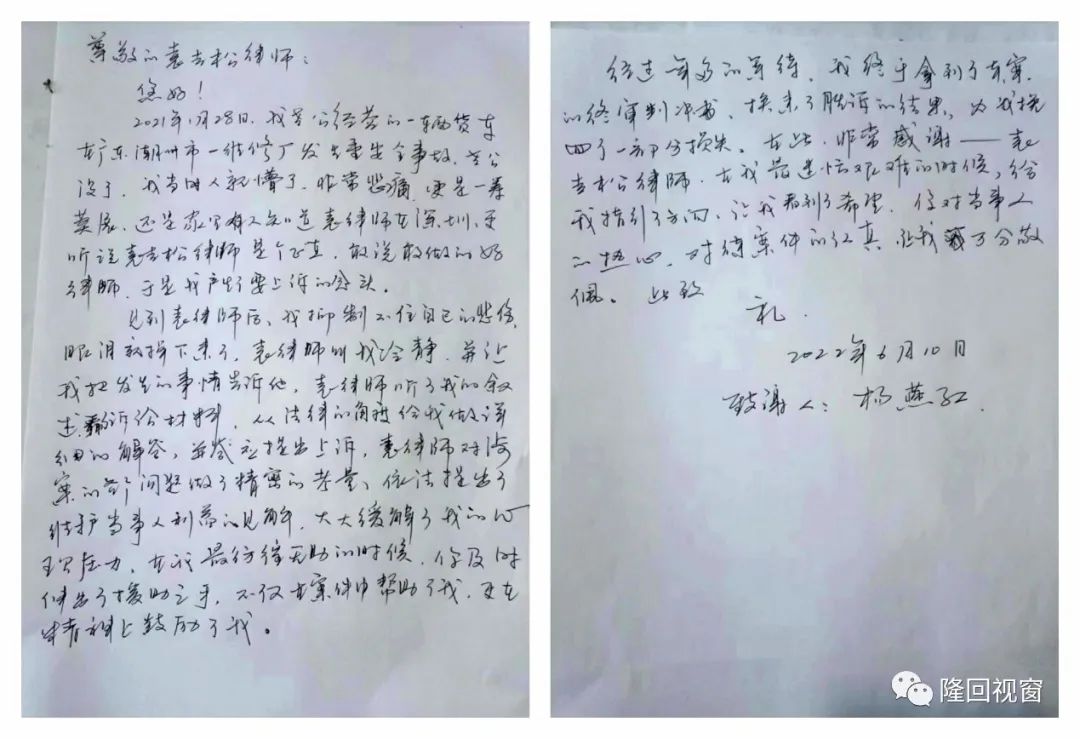 尊敬的袁吉松律师：
您好！
2021年1月28日，我老公经营的一辆货车
在广东潮州市一维修厂发生重生全事故，老公
没了，我当时人就懵了，非常悲痛，更是一筹
莫展，还是家里有人知道袁律师在深圳，更
听说袁吉松律师是个正直、敢说敢做的好
律师，于是我产生了要上诉的念头。
见到袁律师后，我抑制不住自己的悲伤，
眼泪就掉下来了，袁律师叫我冷静，并让
我把发生的事情告诉他，袁律师听了我的叙
述，诉讼材料，从法律的角度给我做详
细的解答，并答应提出上诉，袁律师对涉
案的问题做了精密的考量、依法提出了
维护当事人利益的见解，大大缓解了我的心
理压力，在我最彷徨无助的时候，你及时
伸出了援助之手，不仅在案件中帮助了我，更在
精神上鼓励了我。
经过一年多的等待，我终于拿到了本案
的终审判决书，换来了胜诉的结果，为我挽
回了一部分损失。在此，非常感谢——袁
吉松律师，在我最迷惘艰难的时候，给
我指引了方向，让我看到了希望，你对当事人
的热心，对待案件的认真，让我万分敬
佩。此致
礼．
2022年6月10日
致谢人：杨燕红
隆回视窗